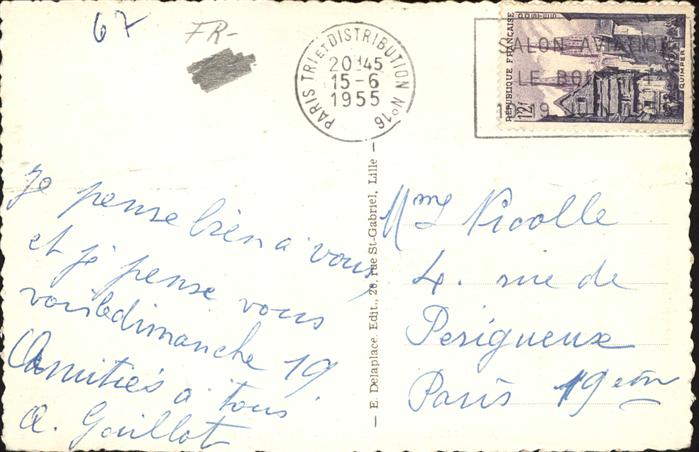 67
FR-
PARIS TRI ET DISTRIBUTION No 16
20H45
15-6
1955
SALON AVIATION
LE BO
RÉPUBLIQUE FRANÇAISE
12F
QUIMPER
Je pense bien a vous
et je pense vous
voir le dimanche 19
Amitiés a tous
A. Gouillot
— E. Delaplace, Edit., 26, rue St-Gabriel, Lille —
Mme Nicolle
4. rue de
Perigueux
Paris 19em